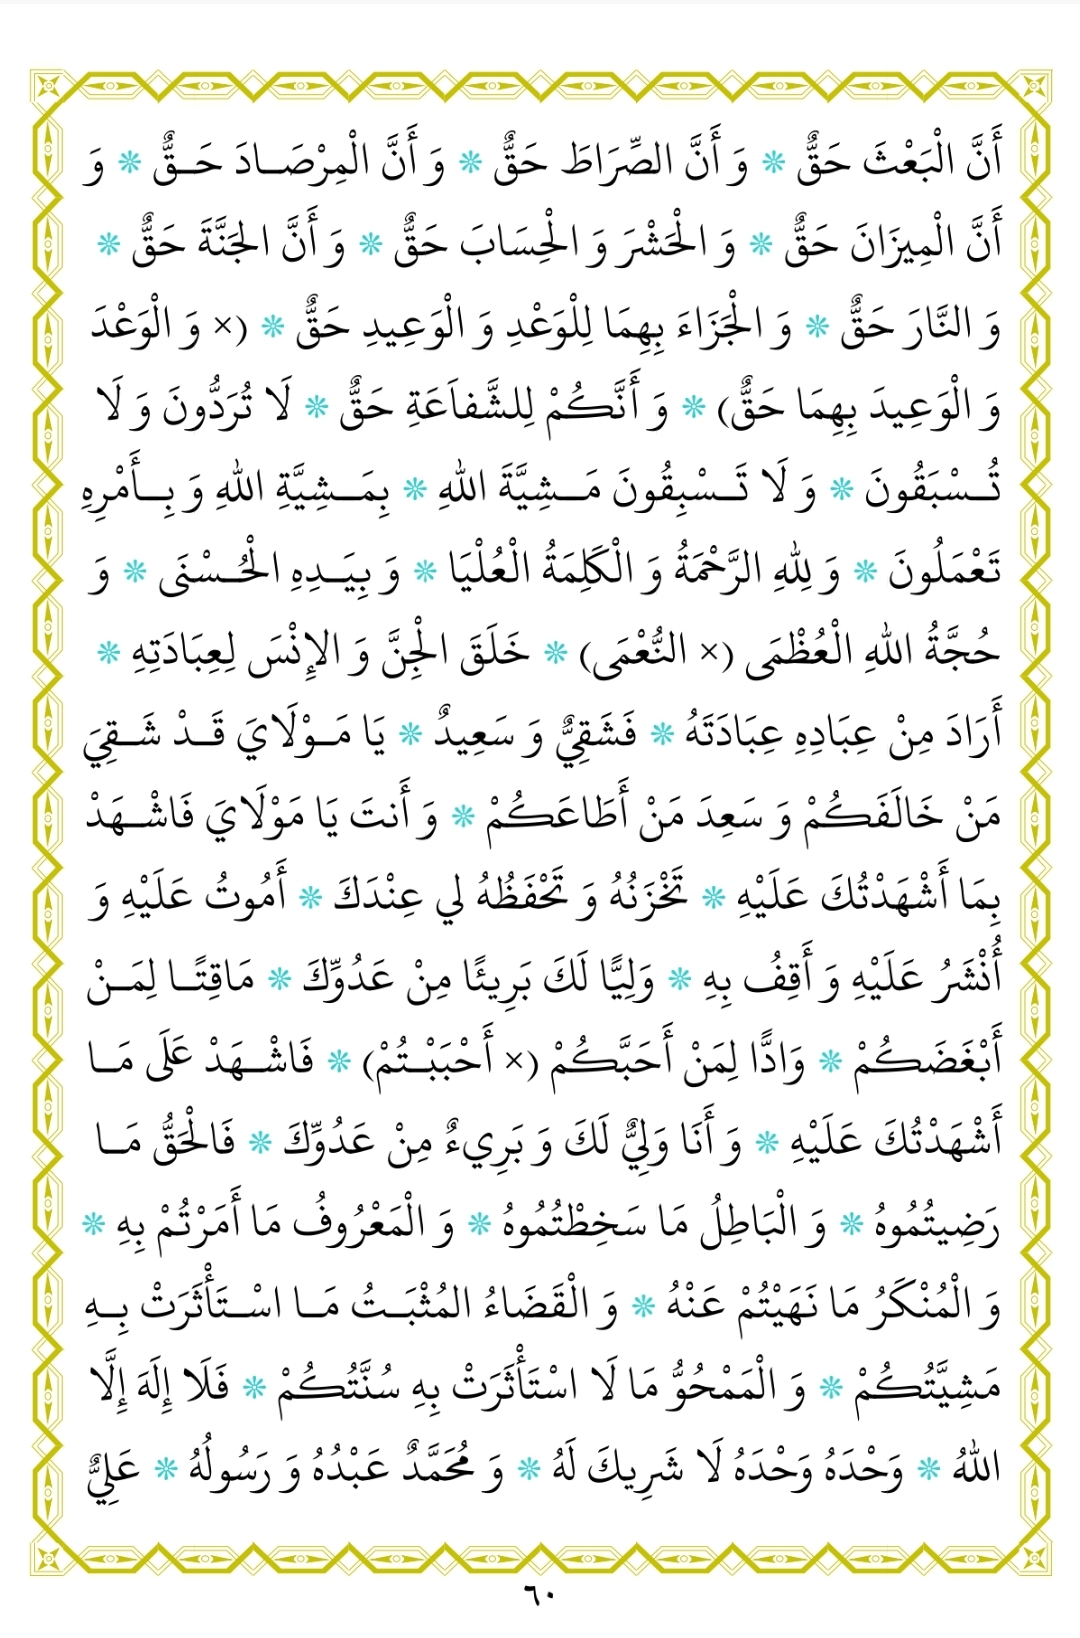 أَنَّ الْبَعْثَ حَقٌّ * وَ أَنَّ الصِّرَاطَ حَقٌّ * وَ أَنَّ الْمِرْصَـادَ حَـقٌّ * وَ
أَنَّ الْمِيزَانَ حَقٌّ * وَ الْحَشْرَ وَ الْحِسَابَ حَقٌّ * وَ أَنَّ الْجَنَّةَ حَقٌّ *
وَ النَّارَ حَقٌّ * وَ الْجَزَاءَ بِهِمَا لِلْوَعْدِ وَ الْوَعِيدِ حَقٌّ * (× وَ الْوَعْدَ
وَ الْوَعِيدَ بِهِمَا حَقٌّ) * وَ أَنَّكُمْ لِلشَّفَاعَةِ حَقٌّ * لَا تُرَدُّونَ وَ لَا
تُـسْبَقُونَ * وَ لَا تَـسْبِقُونَ مَـشِيَّةَ اللهِ * بِمَـشِيَّةِ اللهِ وَ بِـأَمْرِهِ
تَعْمَلُونَ * وَ لِلهِ الرَّحْمَةُ وَ الْكَلِمَةُ الْعُلْيَا * وَ بِيَـدِهِ الْحُـسْنَى * وَ
حُجَّةُ اللهِ الْعُظْمَى (× النُّعْمَى) * خَلَقَ الْجِنَّ وَ الإِنْسَ لِعِبَادَتِهِ *
أَرَادَ مِنْ عِبَادِهِ عِبَادَتَهُ * فَشَقِيٌّ وَ سَعِيدٌ * يَا مَـوْلَايَ قَـدْ شَـقِيَ
مَنْ خَالَفَكُمْ وَ سَعِدَ مَنْ أَطَاعَكُمْ * وَ أَنتَ يَا مَوْلَايَ فَاشْـهَدْ
بِمَا أَشْهَدْتُكَ عَلَيْهِ * تَخْزَنُهُ وَ تَحْفَظُهُ لي عِنْدَكَ * أَمُوتُ عَلَيْهِ وَ
أُنْشَرُ عَلَيْهِ وَ أَقِفُ بِهِ * وَلِيًّا لَكَ بَرِيئًا مِنْ عَدُوِّكَ * مَاقِتًـا لِمَـنْ
أَبْغَضَكُمْ * وَادًّا لِمَنْ أَحَبَّكُمْ (× أَحْبَبْـتُمْ) * فَاشْـهَدْ عَلَى مَـا
أَشْهَدْتُكَ عَلَيْهِ * وَ أَنَا وَلِيٌّ لَكَ وَ بَرِيءٌ مِنْ عَدُوِّكَ * فَالْحَقُّ مَـا
رَضِيتُمُوهُ * وَ الْبَاطِلُ مَا سَخِطْتُمُوهُ * وَ الْمَعْرُوفُ مَا أَمَرْتُمْ بِهِ *
وَ الْمُنْكَرُ مَا نَهَيْتُمْ عَنْهُ * وَ الْقَضَاءُ المُثْبَـتُ مَـا اسْـتَأْثَرَتْ بِـهِ
مَشِيَّتُكُمْ * وَ الْمَمْحُوُّ مَا لَا اسْتَأْثَرَتْ بِهِ سُنَّتُكُمْ * فَلَا إِلَهَ إِلَّا
اللهُ * وَحْدَهُ وَحْدَهُ لَا شَرِيكَ لَهُ * وَ مُحَمَّدٌ عَبْدُهُ وَ رَسُولُهُ * عَلِيٌّ
٦٠